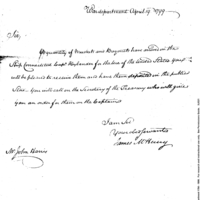 War department April 19 1799
Sir,
A quantity of Muskets and Bayonets have arrived in the
Ship Connecticut for the use of the United States You
will be pleased to receive them and have them deposited in the public
Store. You will call on the Secretary of the Treasury who will give
you an order for them on the Captain
I am Sir
Your obed servant
James McHenry
Mr John Harris